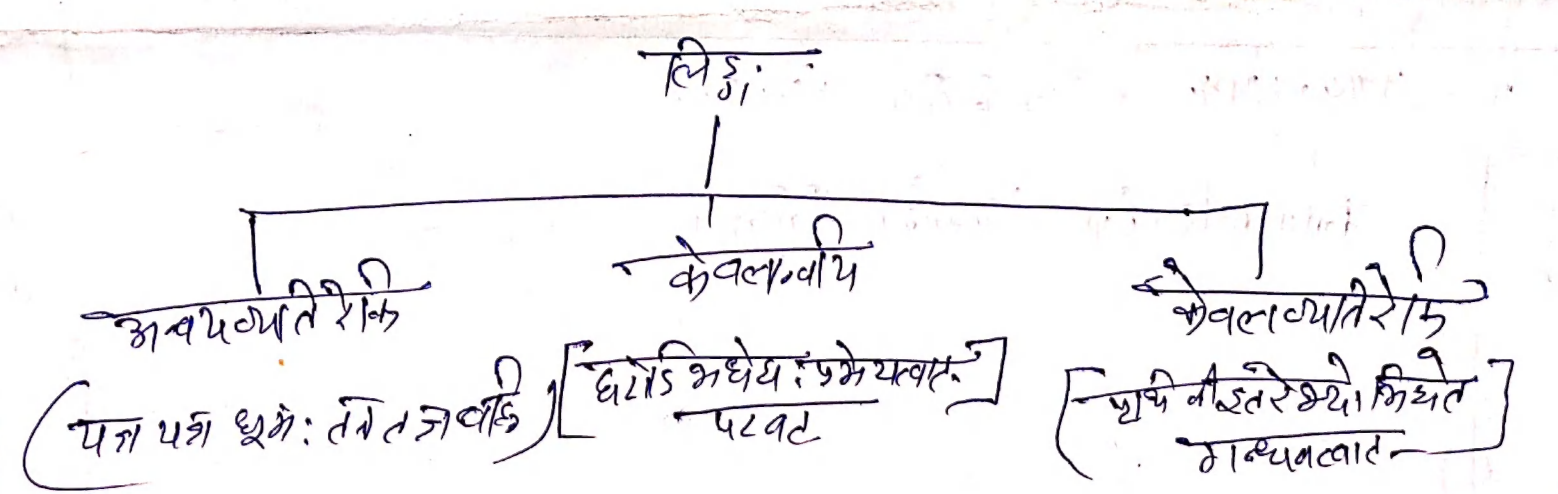 लिङ्गः
केवलान्वयि
अन्वयव्यतिरेकि
केवलव्यतिरेकि
(यत्र यत्र धूमः तत्र तत्र वह्नि)
[घटोऽभिधेयः प्रमेयत्वात्
पटवत्]
[पृथिवी इतरेभ्यो भिद्यते
गन्धवत्वात्]